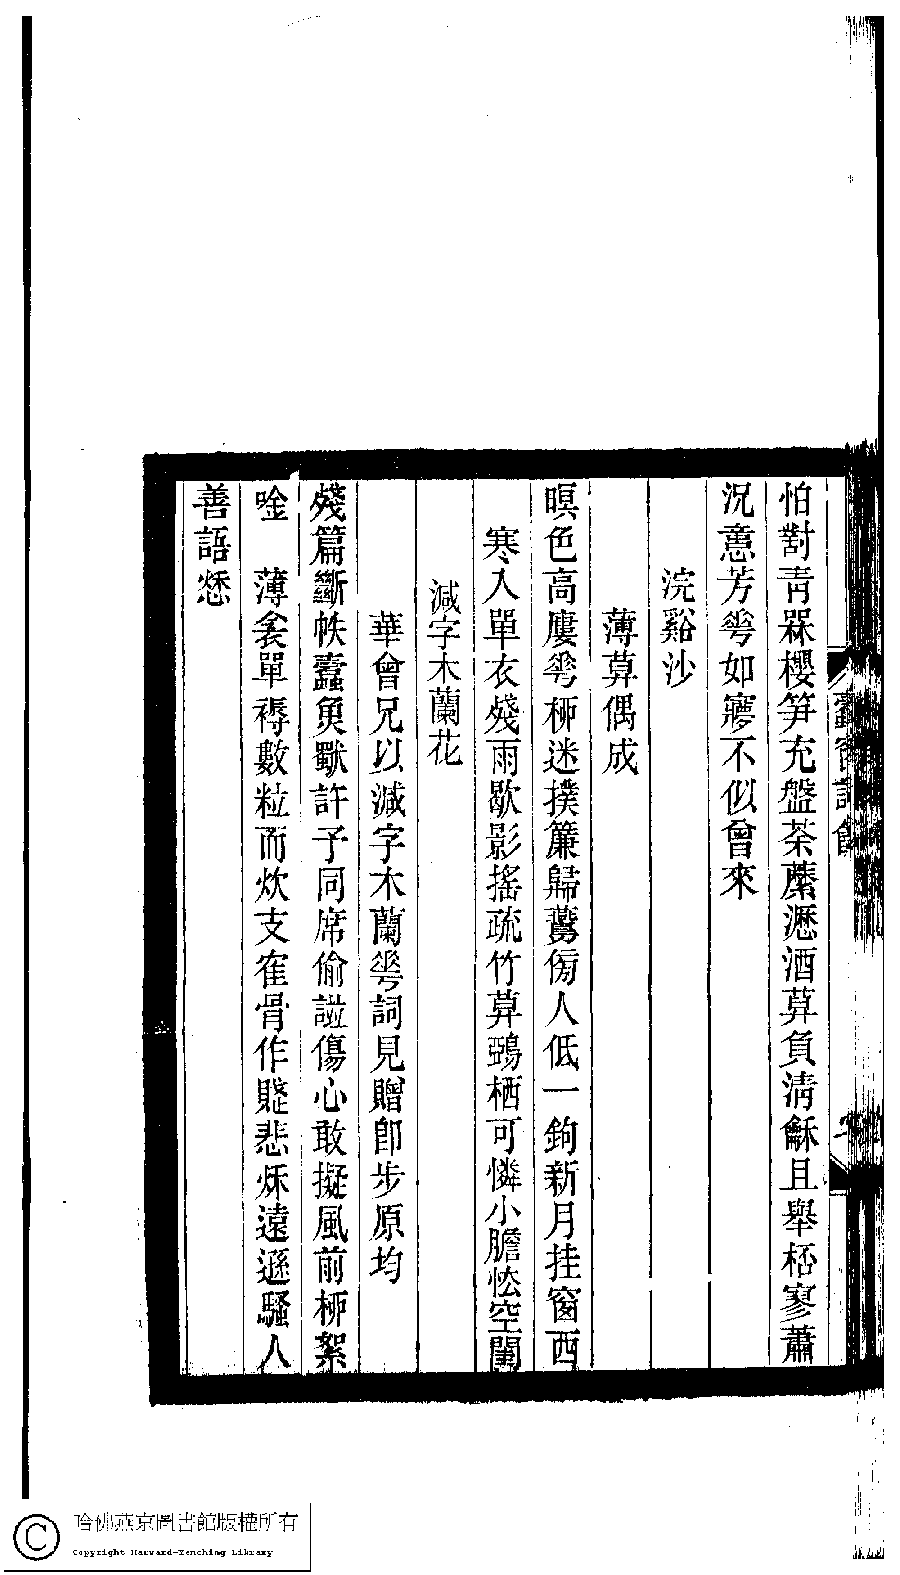 怕對青槑櫻笋充盤荼蘼瀝酒算負淸龢且舉桮寥蕭
況憙芳芌如寱不似曾來
浣谿沙
薄算偶成
暝色高廔芌桺迷撲簾歸鷰傍人低一鉤新月挂窗西
寒入單衣殘雨歇影搖疏竹算鵶栖可憐小膽怯空閨
減字木蘭花
華曾兄以減字木蘭芌詞見贈卽步原均
殘篇斷帙蠹魚獸許予同席偷謚傷心敢擬風前桺絮
唫　薄衾單褥數粒而炊支隺骨作賤悲烁遠遜騷人
善語愁
哈佛燕京圖書館版權所有
Copyright Harvard-Yenching Library